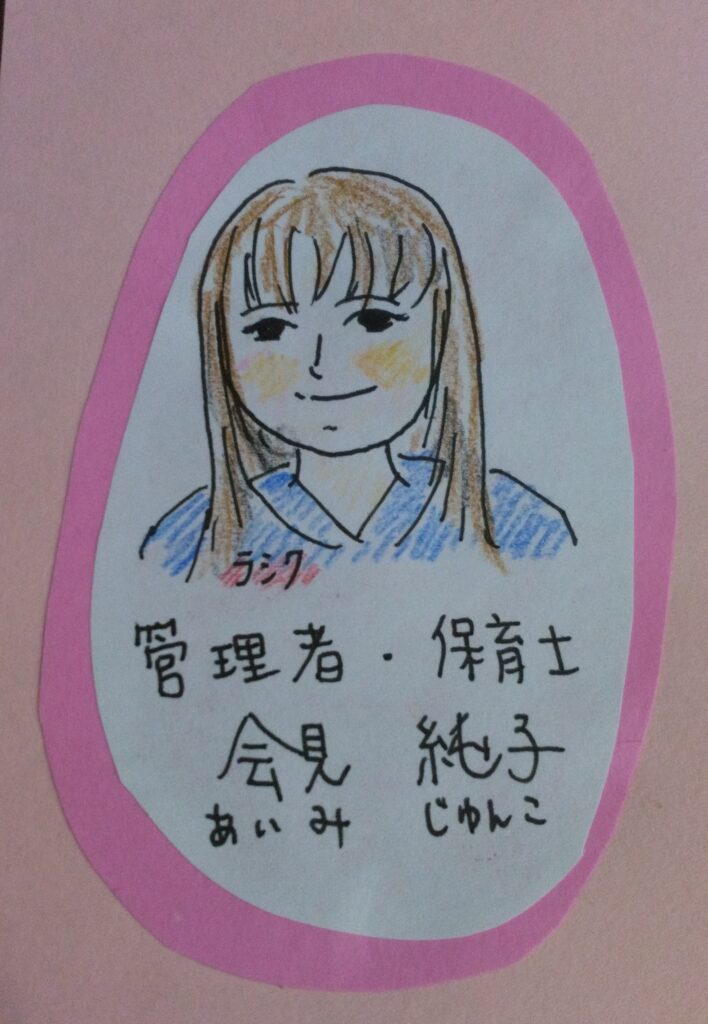 ラシク
管理者・保育士
会見 純子
あいみ じゅんこ